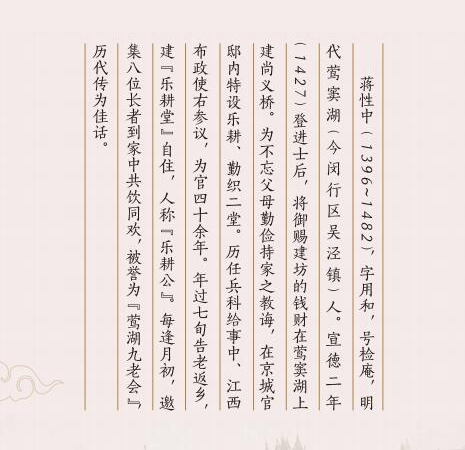 蒋性中（1396~1482），字用和，号检庵，明
代莺窦湖（今闵行区吴泾镇）人。宣德二年
（1427）登进士后，将御赐建坊的钱财在莺窦湖上
建尚义桥。为不忘父母勤俭持家之教诲，在京城官
邸内特设乐耕、勤织二堂。历任兵科给事中、江西
布政使右参议，为官四十余年。年过七旬告老返乡，
建『乐耕堂』自住，人称『乐耕公』。每逢月初，邀
集八位长者到家中共饮同欢，被誉为『莺湖九老会』，
历代传为佳话。